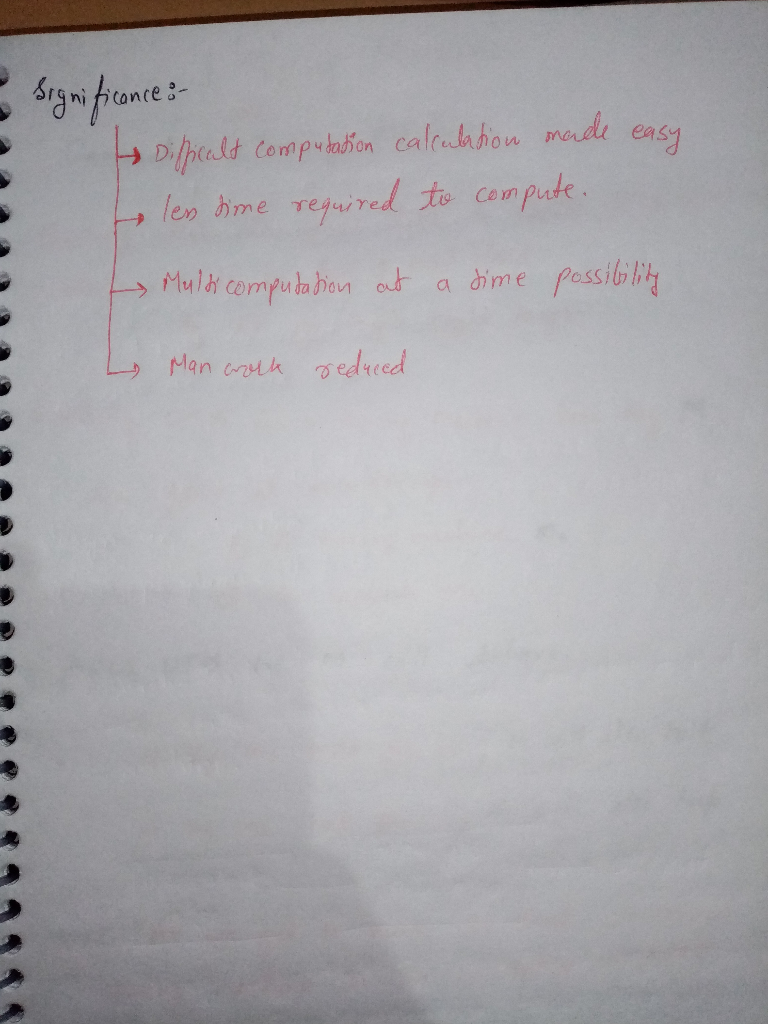 Significance :-
Difficult computation calculation made easy
less time required to compute.
Multi computation at a time possibility
Man work reduced